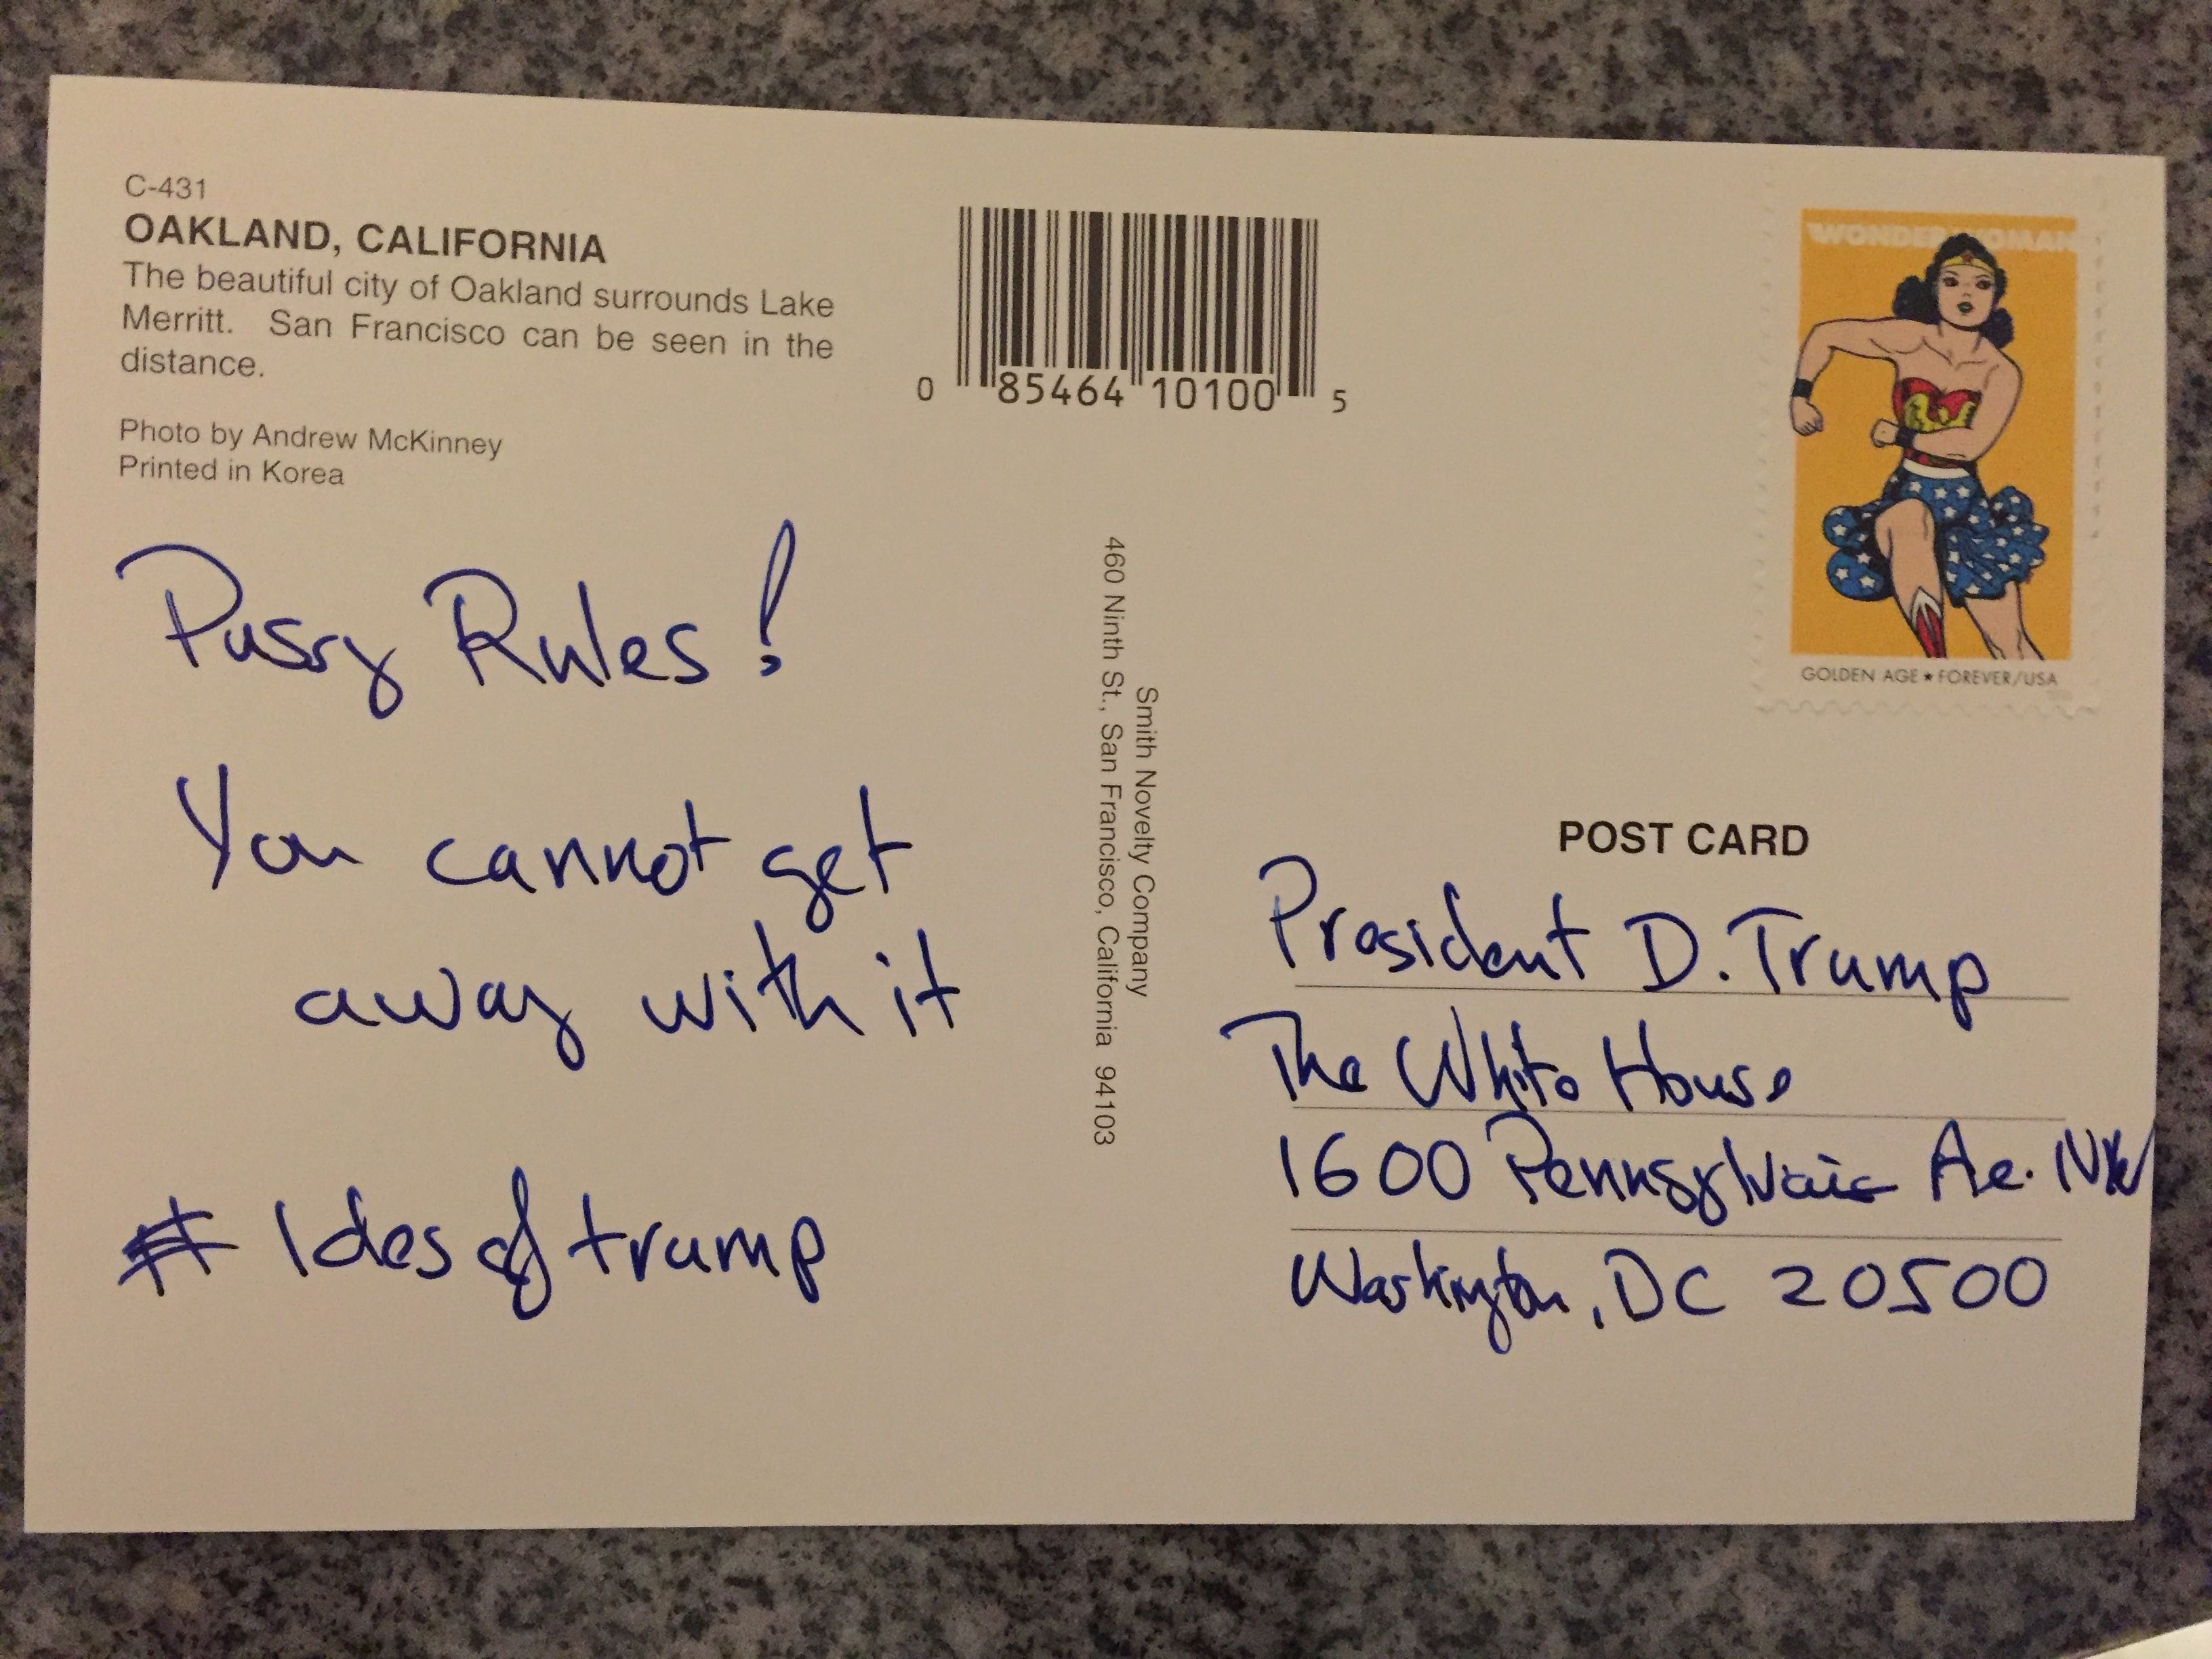 C-431
OAKLAND, CALIFORNIA
The beautiful city of Oakland surrounds Lake
Merritt. San Francisco can be seen in the
distance.
Photo by Andrew McKinney
Printed in Korea
0 85464 10100 5
WONDER WOMAN
GOLDEN AGE ★ FOREVER/USA
Pussy Rules!
You cannot get
away with it
# Ides of trump
Smith Novelty Company
460 Ninth St., San Francisco, California 94103
POST CARD
President D. Trump
The White House
1600 Pennsylvaia Ae. NW
Washington, DC 20500